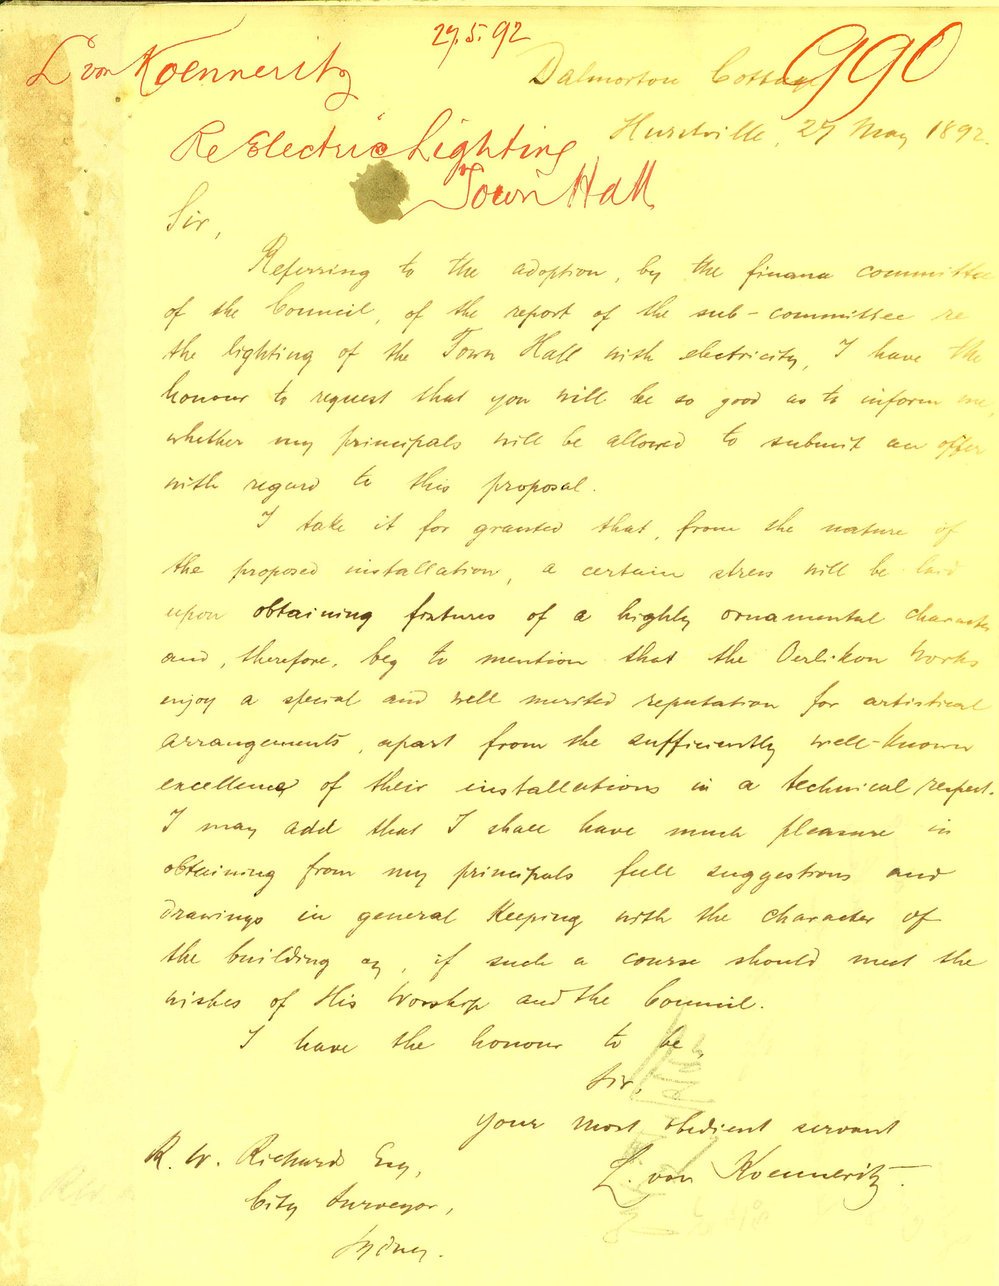 27.5.92
990
L von Koenneritz
Dalmorton Cottage
Hurstville, 27 May 1892.
Re Electric Lighting
Town Hall
Sir,
Referring to the adoption, by the finance committee
of the Council, of the report of the sub-committee re
the lighting of the Town Hall with electricity, I have the
honour to request that you will be so good as to inform me,
whether my principals will be allowed to submit an offer
with regard to this proposal.
I take it for granted that, from the nature of
the proposed installation, a certain stress will be laid
upon obtaining fixtures of a highly ornamental character
and, therefore, beg to mention that the Oerlikon Works
enjoy a special and well merited reputation for artistical
arrangements, apart from the sufficiently well-known
excellence of their installations in a technical respect.
I may add that I shall have much pleasure in
obtaining from my principals full suggestions and
drawings in general keeping with the character of
the building, if such a course should meet the
wishes of His Worship and the Council.
I have the honour to be,
Sir,
your most obedient servant
L. von Koenneritz.
R. W. Richard Esq,
City Surveyor,
Sydney.